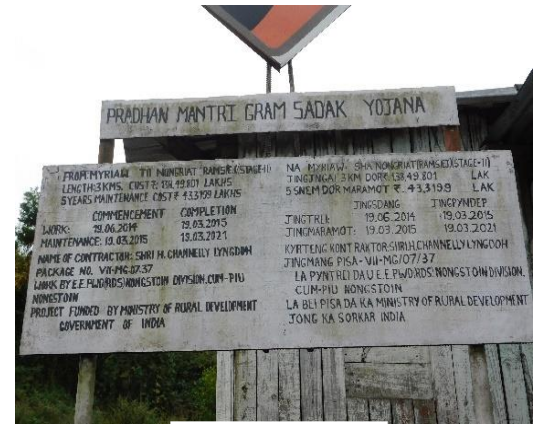 PRADHAN MANTRI GRAM SADAK YOJANA
FROM MYRIAW TO NONGRIAT (RAMSIEJ)(STAGE-II)
LENGTH:3 KMS, COST ₹ 138,49.801 LAKHS
5 YEARS MAINTENANCE COST ₹ 4.33199 LAKHS
COMMENCEMENT COMPLETION
WORK: 19.06.2014 19.03.2015
MAINTENANCE: 19.03.2015 19.03.2021
NAME OF CONTRACTOR: SHRI H. CHANNELLY LYNGDOH
PACKAGE NO. VII-MG-07-37
WORK BY E.E.PWD(RDS) NONGSTOIN DIVISION,CUM-PIU
NONGSTOIN
PROJECT FUNDED BY MINISTRY OF RURAL DEVELOPMENT
GOVERNMENT OF INDIA
NA MYRIAW- SHA NONGRIAT(RAMSIEJ)(STAGE-II)
JINGJNGAI 3 KM DOR ₹ 138,49.801 LAK
5 SNEM DOR MARAMOT ₹. 4.33199 LAK
JINGSDANG JINGPYNDEP
JINGTREI: 19.06.2014 19.03.2015
JINGMARAMOT: 19.03.2015 19.03.2021
KYRTENG KONTRAKTOR:SHRI.H.CHANNELLY LYNGDOH
JINGMANG PISA-VII-MG/07/37
LA PYNTREI DA U E.E.PWD(RDS) NONGSTOIN DIVISION.
CUM-PIU NONGSTOIN
LA BEI PISA DA KA MINISTRY OF RURAL DEVELOPMENT
JONG KA SORKAR INDIA